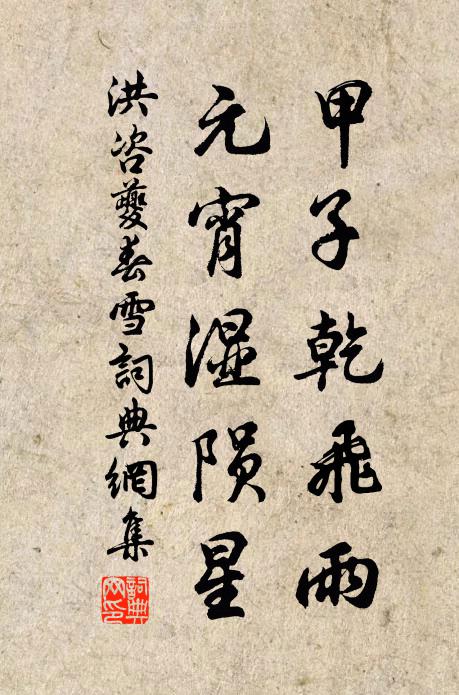 甲子乾飛雨
元宵湿陨星
洪咨夔春雪詞典網集
詞典网印